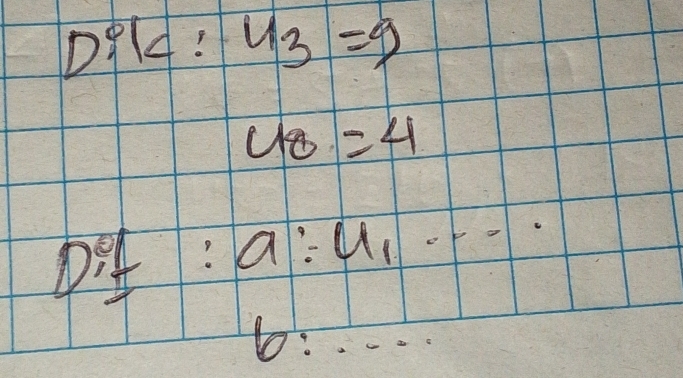 Dik : U3 = 9
U8 = 4
Dit : a : U1 .....
b : .....